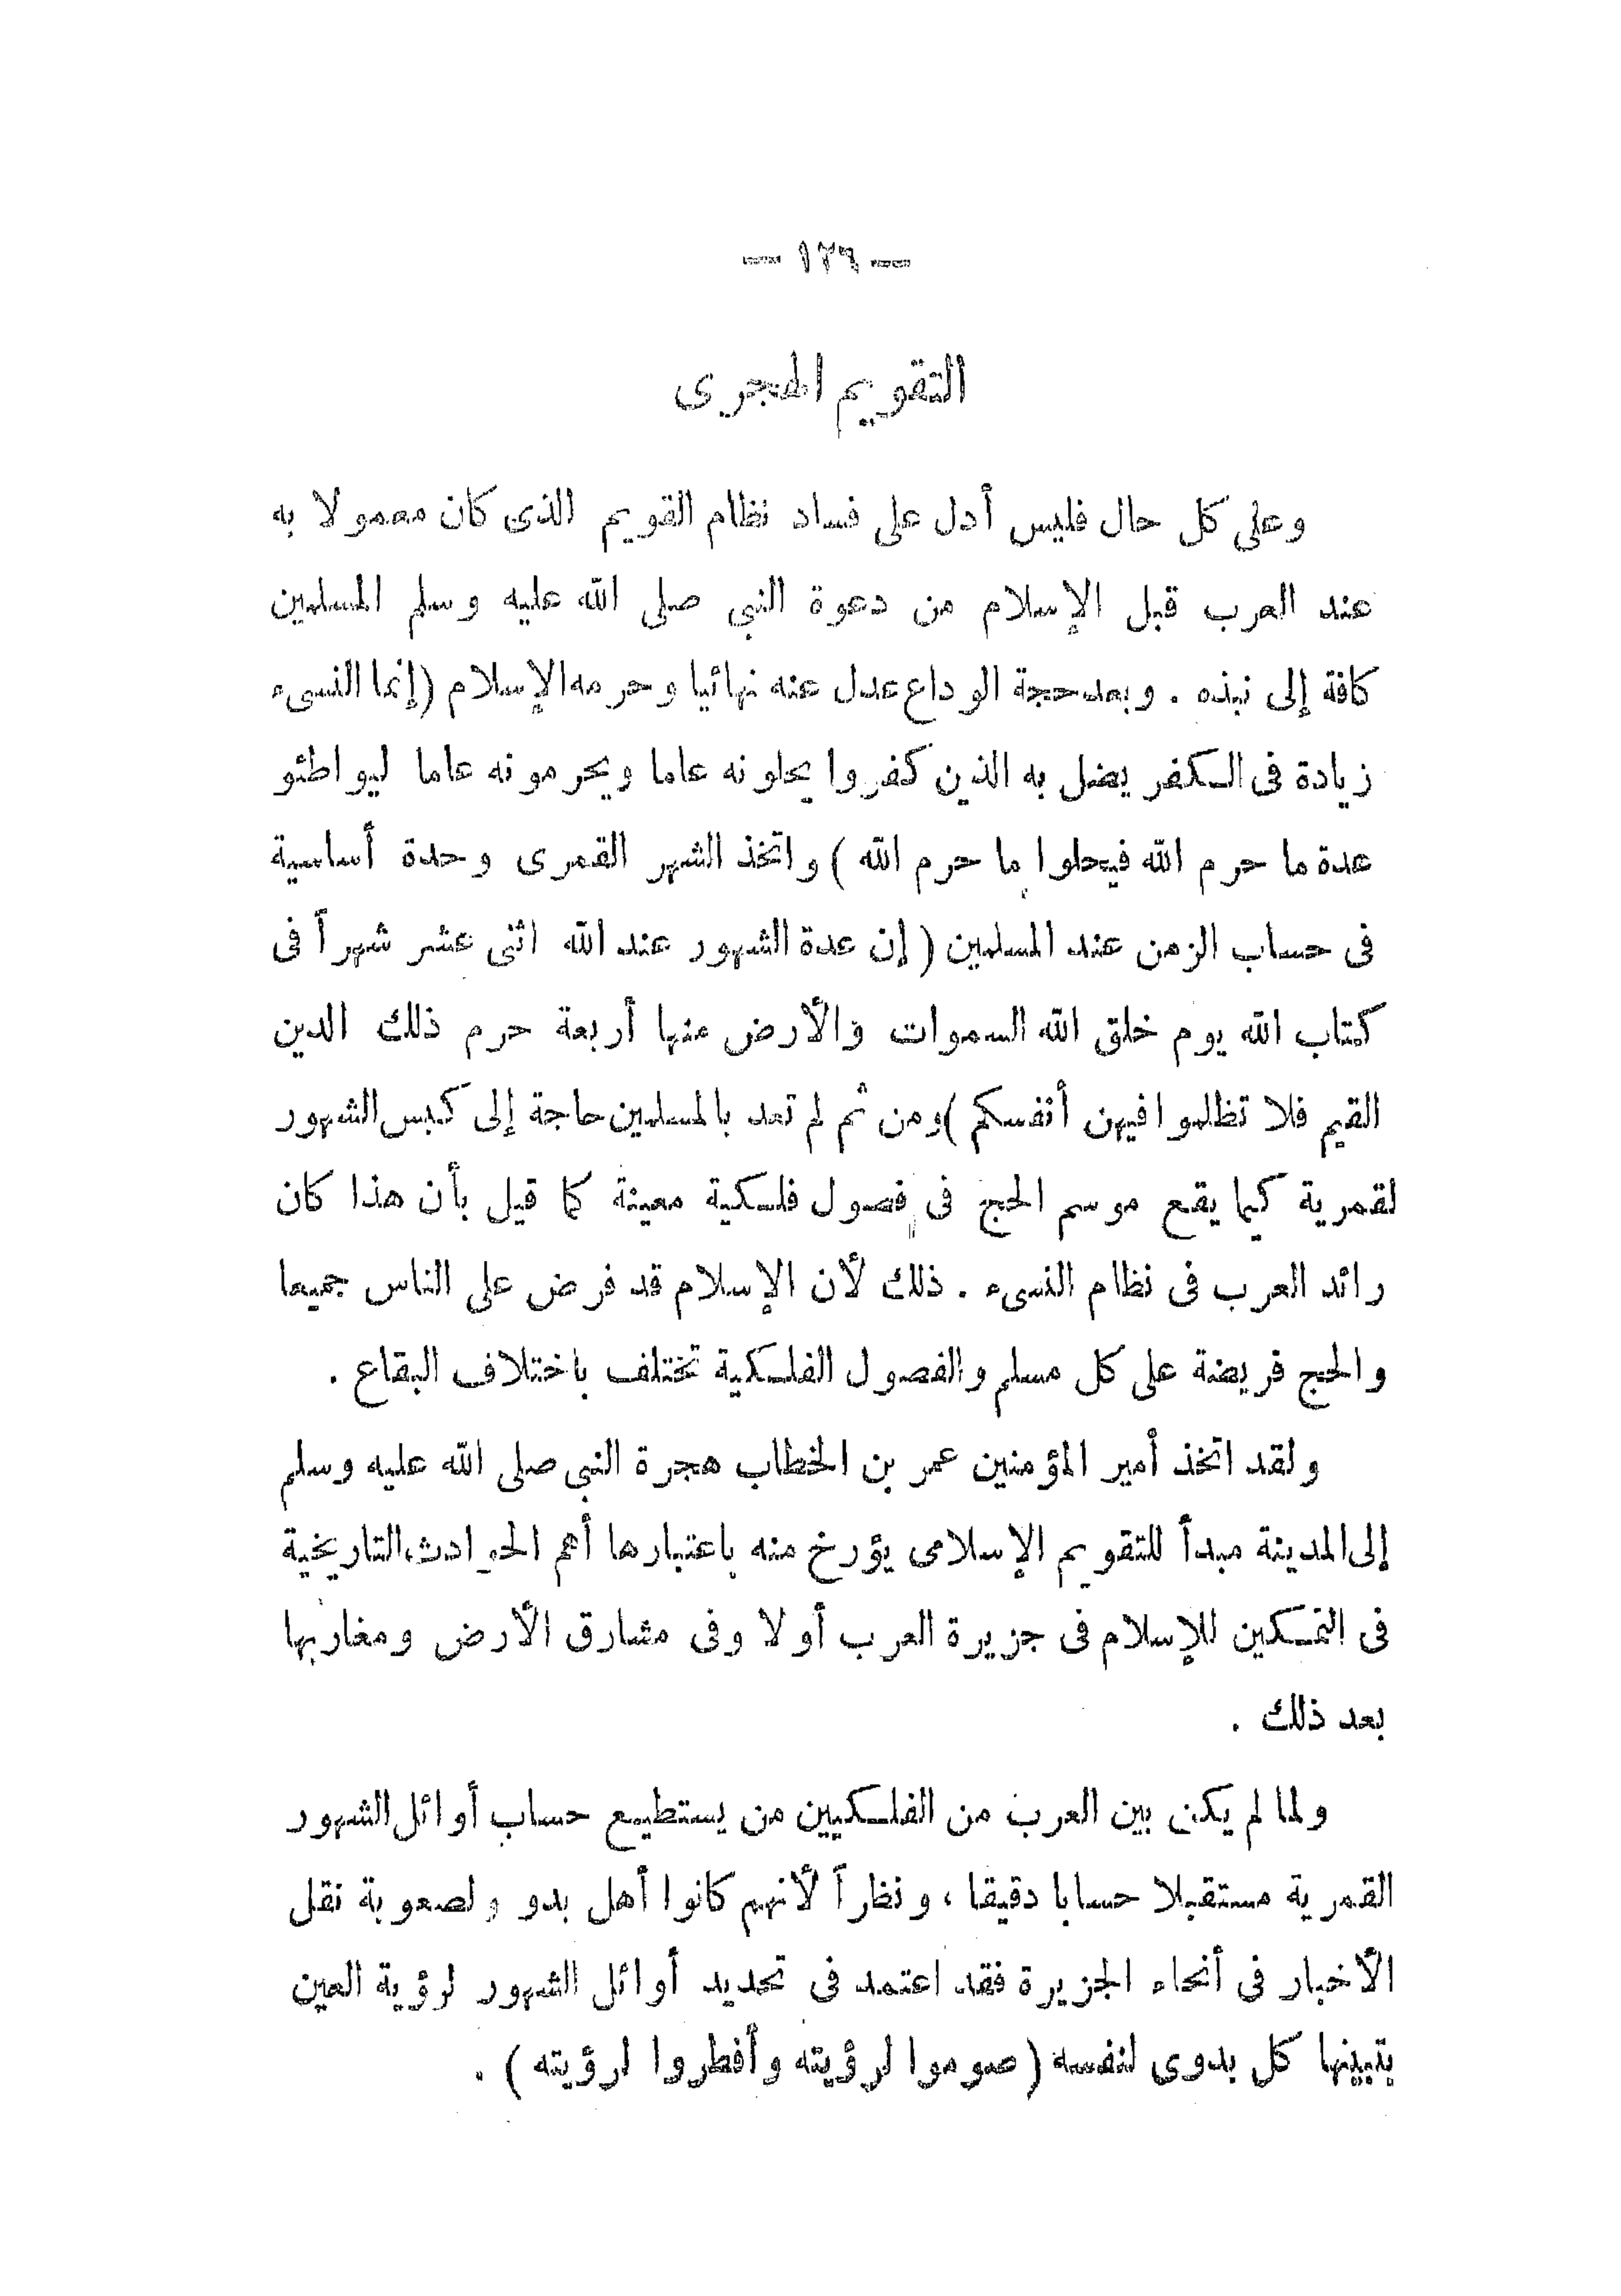 — ١٢٦ —
التقويم الهجرى
وعلى كل حال فليس أدل على فساد نظام القويم الذى كان معمولا به
عند العرب قبل الإسلام من دعوة النبى صلى الله عليه وسلم المسلمين
كافة إلى نبذه . وبعد حجة الوداع عدل عنه نهائيا وحرمه الإسلام (إنما النسىء
زيادة فى الكفر يضل به الذين كفروا يحلونه عاما ويحرمونه عاما ليواطئو
عدة ما حرم الله فيحلوا ما حرم الله ) واتخذ الشهر القمرى وحدة أساسية
فى حساب الزمن عند المسلمين ( إن عدة الشهور عند الله اثنى عشر شهراً فى
كتاب الله يوم خلق الله السموات والأرض منها أربعة حرم ذلك الدين
القيم فلا تظلموا فيهن أنفسكم )ومن ثم لم تعد بالمسلمين حاجة إلى كبس الشهور
لقمرية كيما يقع موسم الحج فى فصول فلكية معينة كما قيل بأن هذا كان
رائد العرب فى نظام النسىء . ذلك لأن الإسلام قد فرض على الناس جميعا
والحج فريضة على كل مسلم والفصول الفلكية تختلف باختلاف البقاع .
ولقد اتخذ أمير المؤمنين عمر بن الخطاب هجرة النبى صلى الله عليه وسلم
إلى المدينة مبدأ للتقويم الإسلامى يؤرخ منه باعتبارها أهم الحوادث التاريخية
فى التمكين للإسلام فى جزيرة العرب أولا وفى مشارق الأرض ومغاربها
بعد ذلك .
ولما لم يكن بين العرب من الفلكيين من يستطيع حساب أوائل الشهور
القمرية مستقبلا حسابا دقيقا ، ونظراً لأنهم كانوا أهل بدو ولصعوبة نقل
الأخبار فى أنحاء الجزيرة فقد اعتمد فى تحديد أوائل الشهور لرؤية العين
يتبينها كل بدوى لنفسه ( صوموا لرؤيته وأفطروا لرؤيته ) .